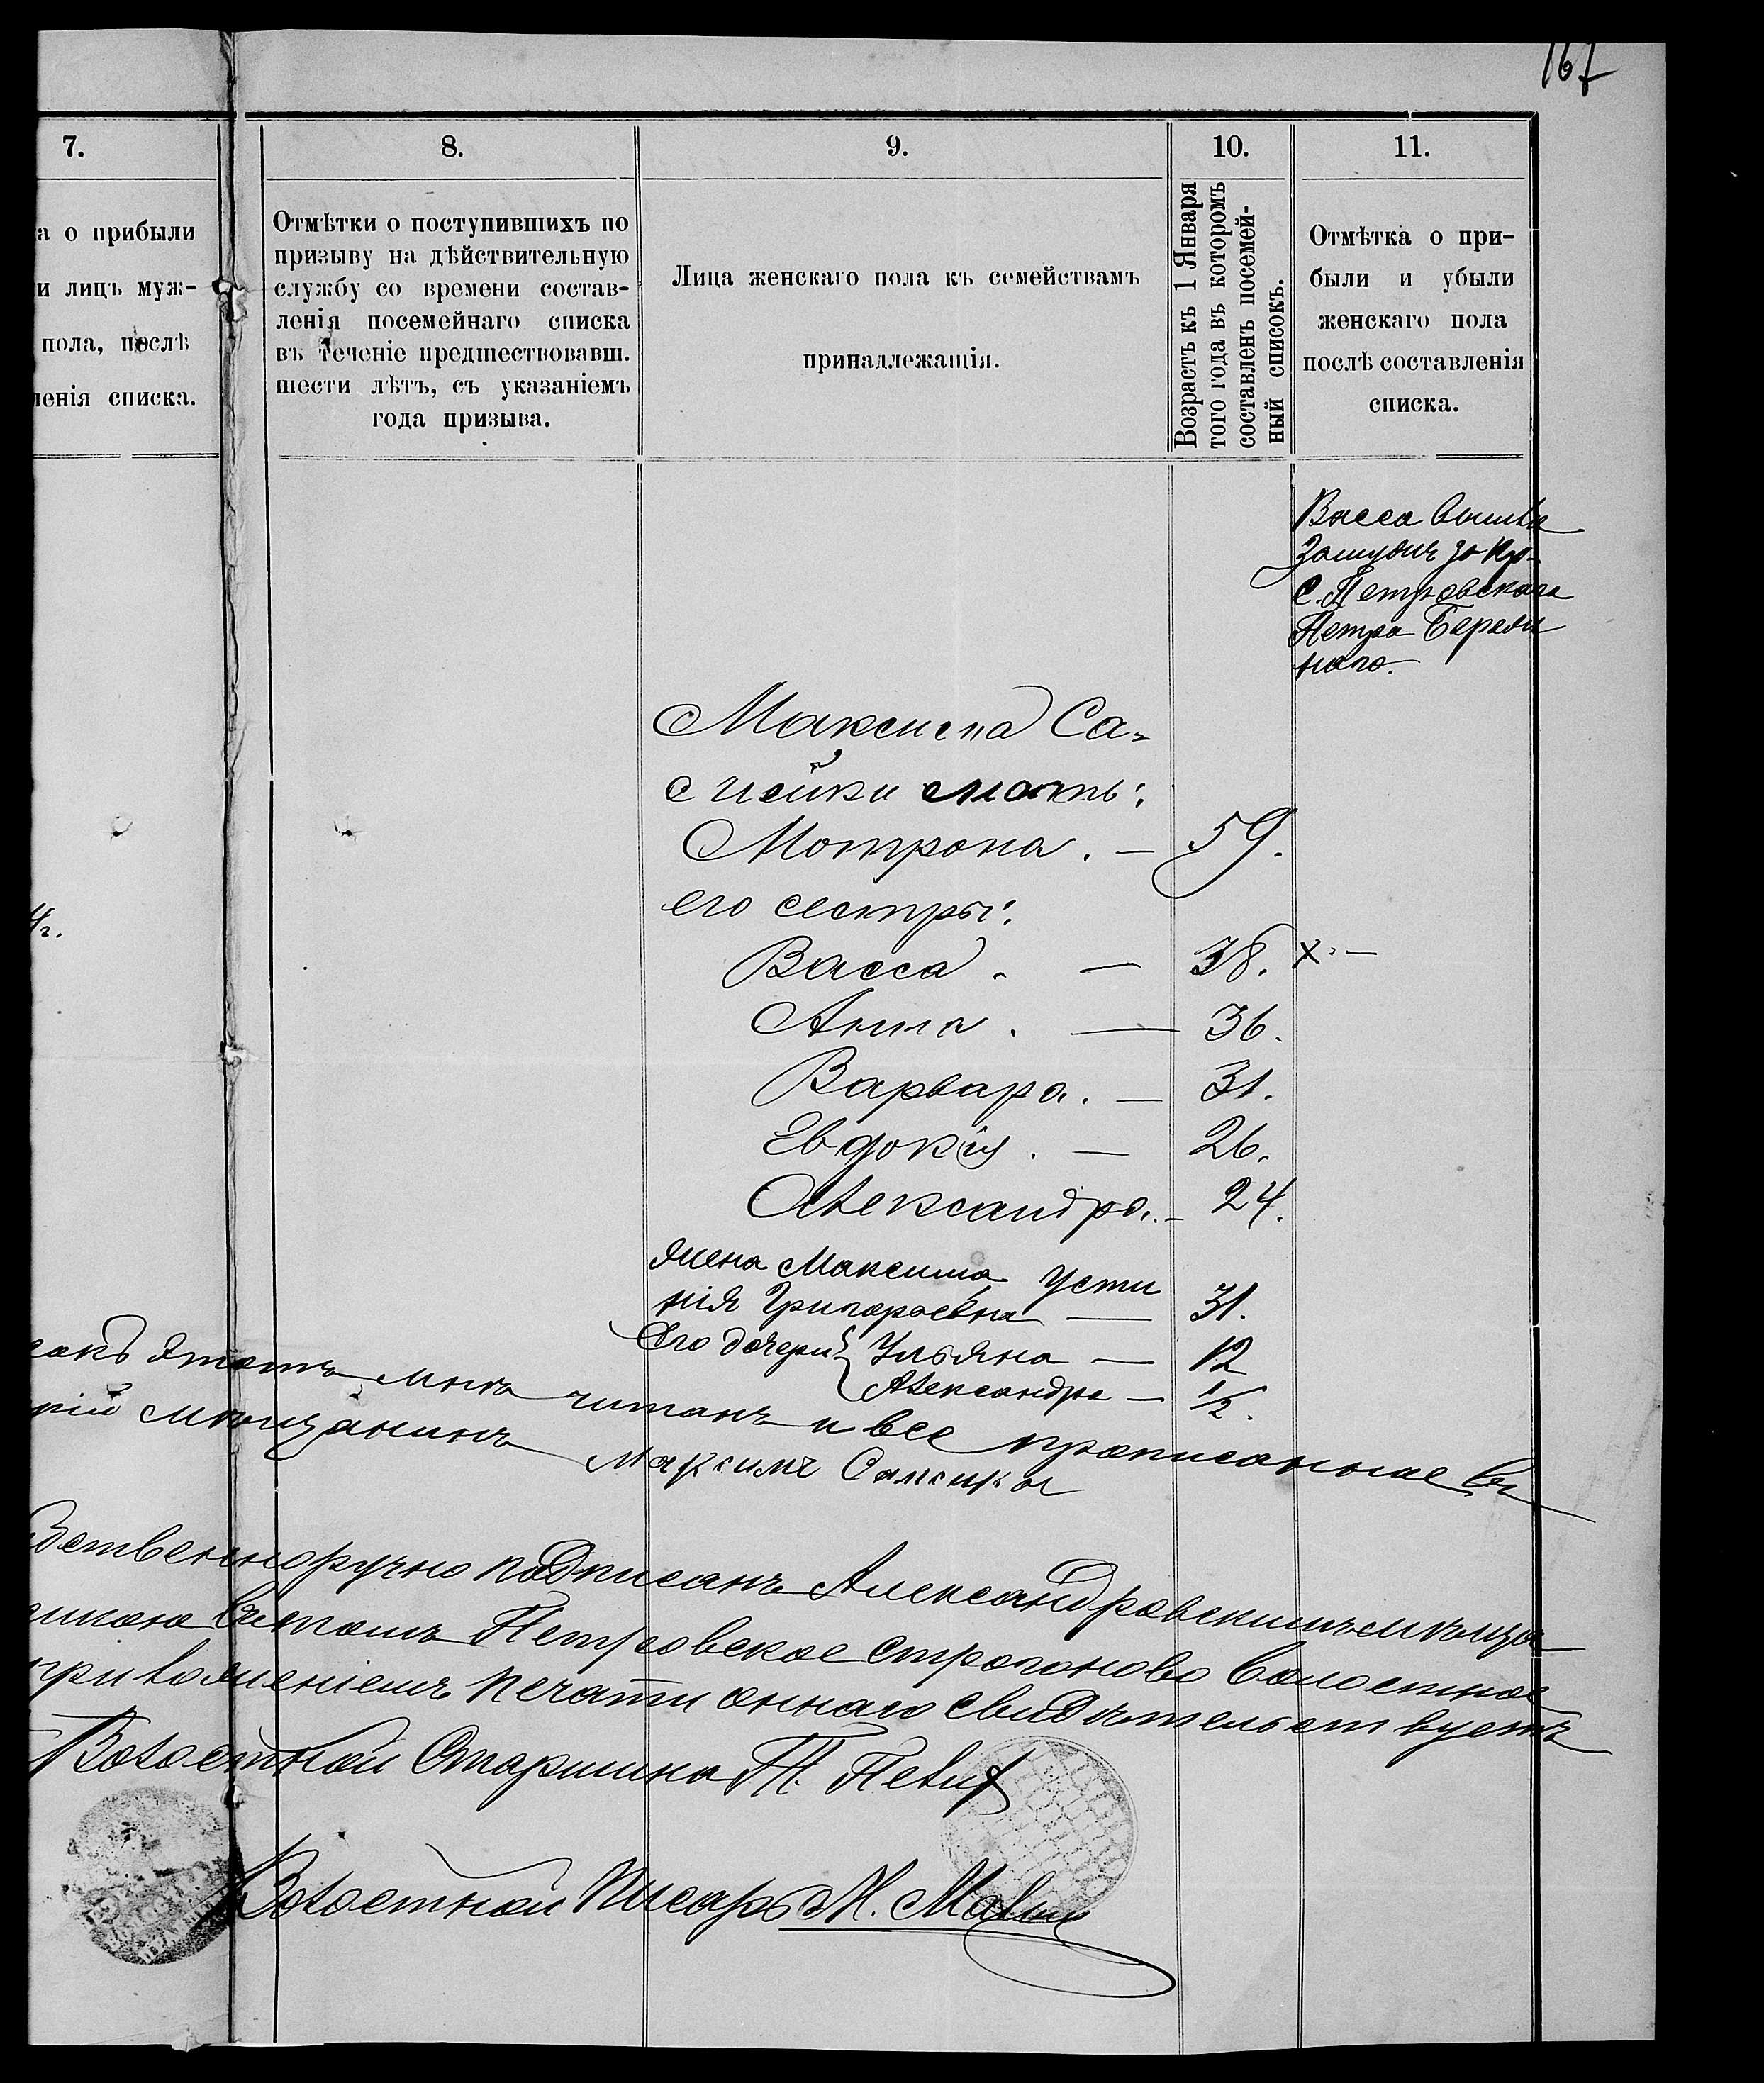 167
7.
8.
9.
10.
11.
а о прибыли
и лицъ муж-
пола, послѣ
ленія списка.
Отмѣтки о поступившихъ по
призыву на дѣйствительную
службу со времени состав-
ленія посемейнаго списка
въ теченіе предшествовавш.
шести лѣтъ, съ указаніемъ
года призыва.
Лица женскаго пола къ семействамъ
принадлежащія.
Возрастъ къ 1 Января
того года въ которомъ
составленъ посемей-
ный списокъ.
Отмѣтка о при-
были и убыли
женскаго пола
послѣ составленія
списка.
Васса вышла
замужъ за кр.
с. Петровскаго
Петра
наго.
Максима Са-
мсейки мать:
Мотрона. — 59.
его сестры:
Васса. — 38. х. —
Анна. — 36.
Варвара. — 31.
Евдокія. — 26.
Александра. — 24.
жена Максима Усти
нія Григорьевна — 31.
Его дочери { Ульяна — 12
Александра — 1/2.
4г.
сокъ этотъ мнѣ читанъ и все прописанное въ
кій мѣщанинъ Максимъ
бственноручно подписанъ Александровскимъ мѣща
въ томъ Петровское Строгоново волостное
приложеніемъ печати оннаго свидѣтельствуетъ
Волостной Старшина П.
Волостной Писарь